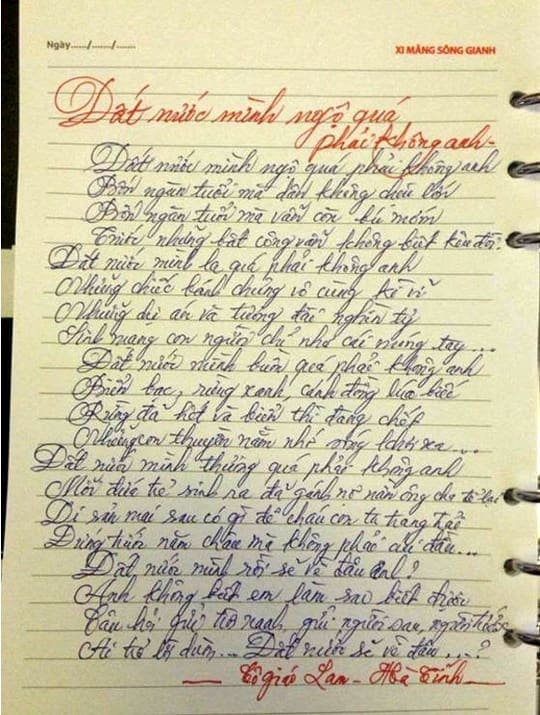 Ngày....../......./.......
XI MĂNG SÔNG GIANH
Đất nước mình ngộ quá
phải không anh -
Đất nước mình ngộ quá phải không anh
Bốn ngàn tuổi mà dân không chịu lớn
Bốn ngàn tuổi mà vẫn còn bú mớm
Trước những bất công vẫn không biết kêu đòi?
Đất nước mình lạ quá phải không anh
Những chiếc bánh chưng vô cùng kì vĩ
Những dự án và tượng đài nghìn tỷ
Sinh mạng con người chỉ như cái móng tay ...
Đất nước mình buồn quá phải không anh
Biển bạc, rừng xanh, cánh đồng lúa biếc
Rừng đã hết và biển thì đang chết
Những con thuyền nằm nhớ sóng khơi xa ...
Đất nước mình thương quá phải không anh
Mỗi đứa trẻ sinh ra đã gánh nợ nần ông cha để lại
Di sản mai sau có gì để cháu con ta trang trải
Đứng trước năm châu mà không phải cúi đầu...
Đất nước mình rồi sẽ về đâu anh?
Anh không biết em làm sao biết được
Câu hỏi gửi trời xanh, gửi người sau, người trước
Ai trả lời dùm... Đất nước sẽ về đâu ...?
Cô giáo Lam - Hà Tĩnh